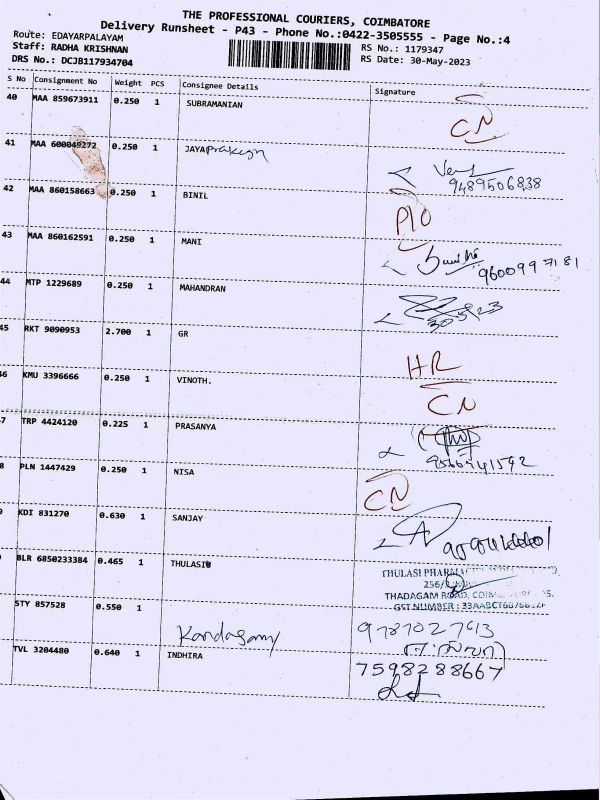 THE PROFESSIONAL COURIERS, COIMBATORE
Delivery Runsheet - P43 - Phone No.:0422-3505555 - Page No.:4
Route: EDAYARPALAYAM
Staff: RADHA KRISHNAN RS No.: 1179347
DRS No.: DCJB117934704 RS Date: 30-May-2023
S No Consignment No Weight PCS Consignee Details Signature
40 MAA 859673911 0.250 1 SUBRAMANIAN CN
41 MAA 600049272 0.250 1 JAYAPrakash
9489506838
42 MAA 860158663 0.250 1 BINIL P10
43 MAA 860162591 0.250 1 MANI 9600997181
44 MTP 1229689 0.250 1 MAHANDRAN
45 RKT 9090953 2.700 1 GR HR
46 KMU 3396666 0.250 1 VINOTH. CN
7 TRP 4424120 0.225 1 PRASANYA
9566941542
8 PLN 1447429 0.250 1 NISA CN
KDI 831270 0.630 1 SANJAY
BLR 6850233384 0.465 1 THULASI
THULASI PHARMA
256/
THADAGAM ROAD,
GST NUMBER :
STY 857528 0.550 1 Kandasamy 9787027613
TVL 3204480 0.640 1 INDHIRA 7598288667